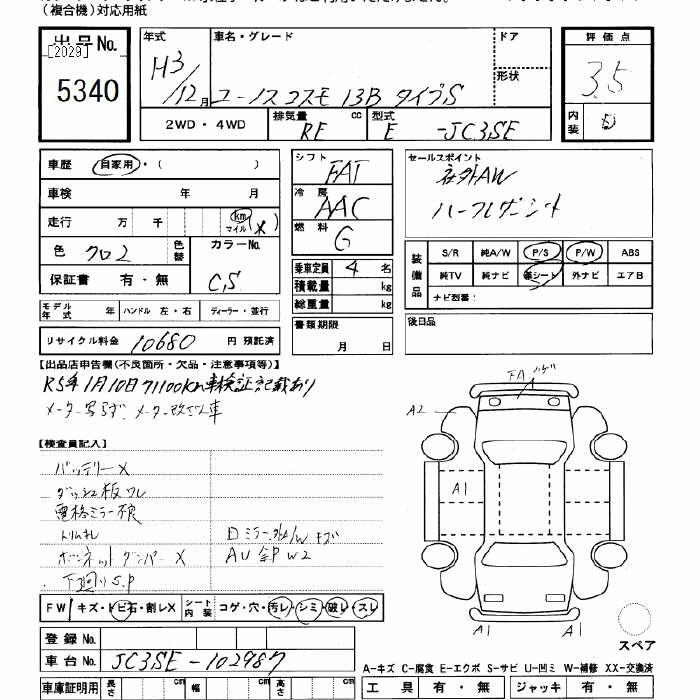 （複合機）対応用紙
出品No.
[2029]
5340
年式
H3/12月
車名・グレード
ユーノスコスモ 13B タイプS
ドア
形状
評価点
3.5
内装
D
2WD・4WD
排気量 RE cc
型式 E -JC3SE
車歴 自家用・（ ）
車検 年 月
走行 万 千 km マイル (X)
色 クロ2 色替
カラーNo. CS
保証書 有・無
シフト FAT
冷房 AAC
燃料 G
乗車定員 4 名
積載量 kg
総重量 kg
セールスポイント
社外AW
ハーフレザーシート
装備品
S/R 純A/W P/S P/W ABS
純TV 純ナビ 革シート 外ナビ エアB
ナビ型番：
モデル年式 年 ハンドル 左・右 ディーラー・並行
リサイクル料金 10680 円 預託済
書類期限 月 日
後日品
【出品店申告欄(不良箇所・欠品・注意事項等)】
R5年1月10日71100km車検証記載あり
メーター写らず、メーター改ざん車
【検査員記入】
バッテリーX
ダッシュ板ワレ
電格ミラー不良
トリムキレ
ボンネットダンパーX
下廻りS.P
ミラー、外A/Wキズ
AU 全P W2
FA
A2
A1
A1
A1
FW キズ・トビ石・割レX
シート内装 コゲ・穴・汚レ・シミ・破レ・スレ
スペア
登録No.
車台No. JC3SE-102987
A-キズ C-腐食 E-エクボ S-サビ U-凹ミ W-補修 XX-交換済
車庫証明用 長さ cm 幅 cm 高さ cm
工具 有・無 ジャッキ 有・無